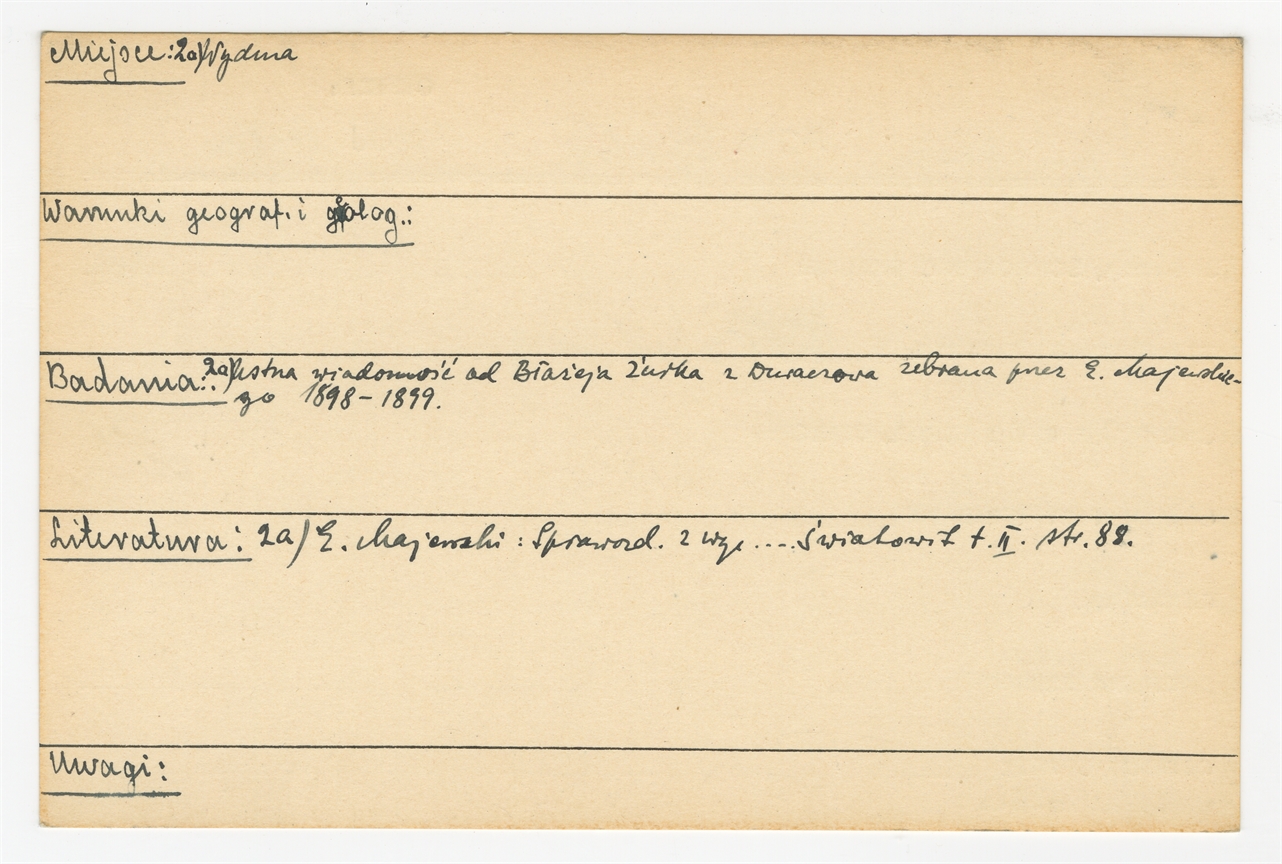 Miejsce: 2a) Wydma
Warunki geograf. i geolog.:
Badania: 2a) Ustna wiadomość od Błażeja Żurka z Duraczowa zebrana przez E. Majewskie-
go 1898-1899.
Literatura: 2a) E. Majewski: Sprawozd. z wyc .... Światowit t. II. str. 88.
Uwagi: